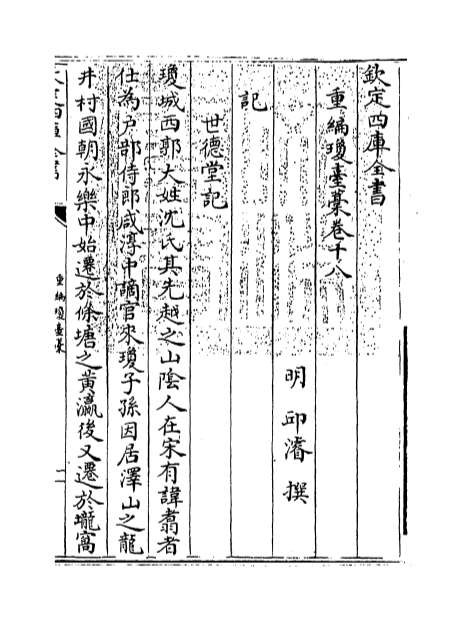 欽定四庫全書
重編瓊臺藁卷十八
明 邱濬 撰
記
世德堂記
瓊城西郭大姓沈氏其先越之山陰人在宋有諱翥者
仕為户部侍郎咸淳中謫官來瓊子孫因居澤山之龍
井村國朝永樂中始遷於條塘之黄瀛後又遷於壠窩
重編瓊臺藁